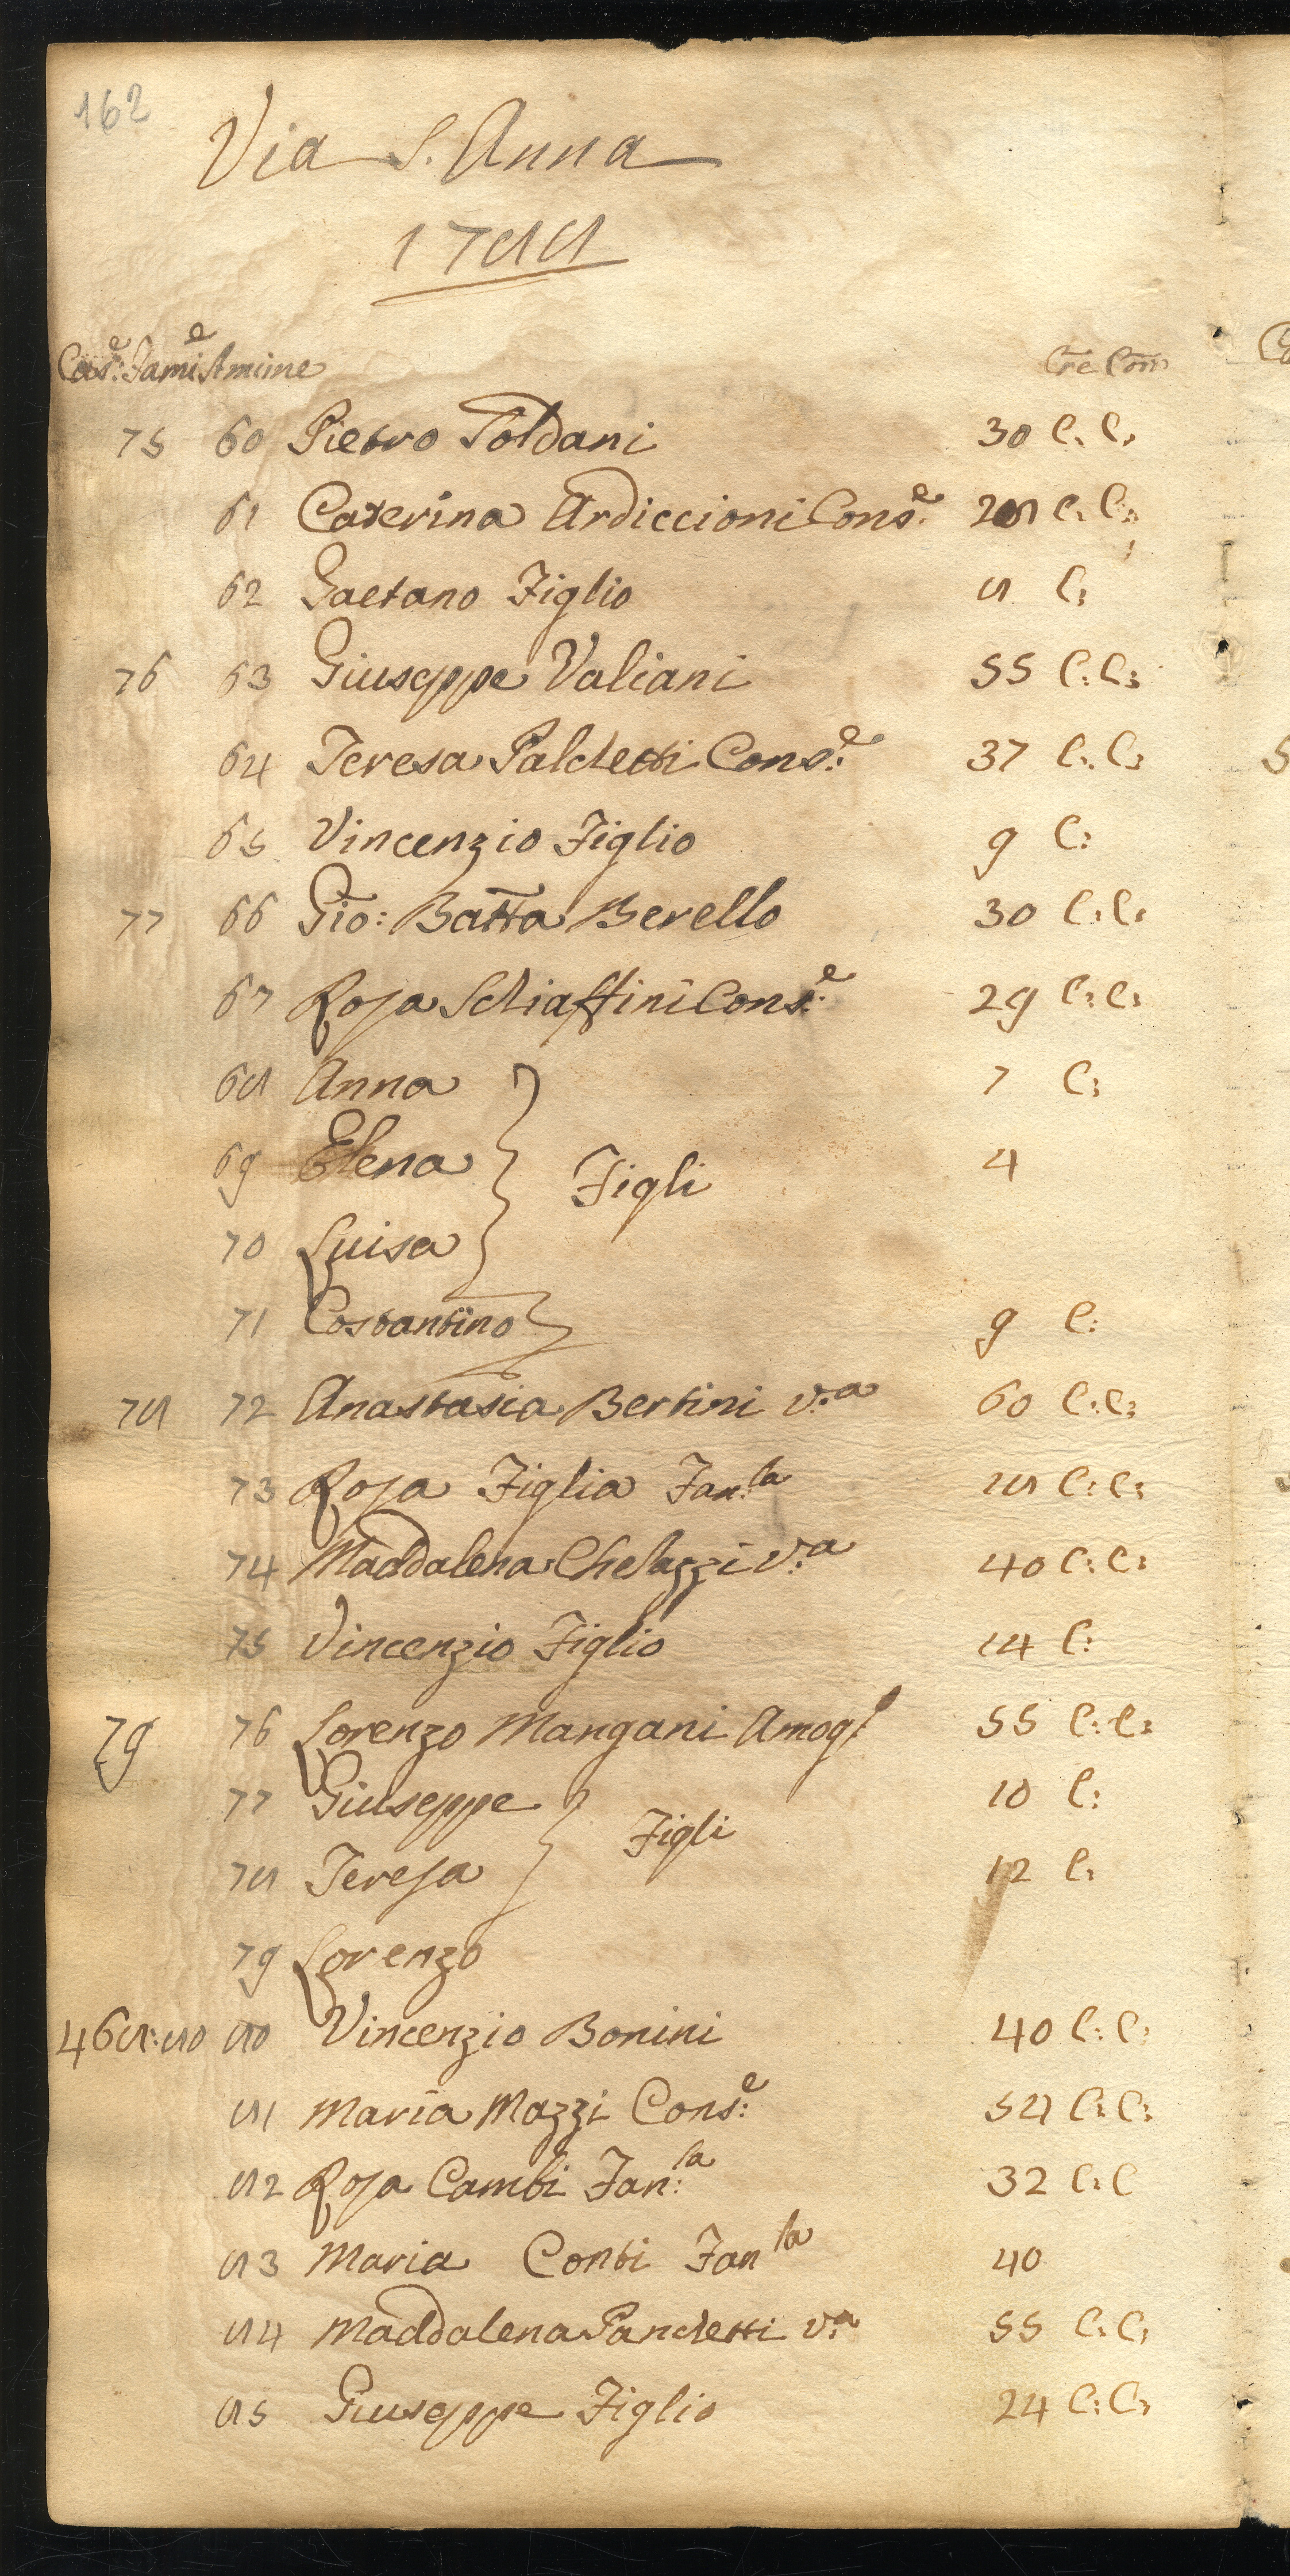 162
Via S. Anna
1788
Cas.e Fami.e Anime Cre Com
75 60 Pietro Poldani 30 C. C.
61 Caterina Ardiccioni Cons.e 28 C. C.
62 Gaetano Figlio 8 C:
76 63 Giuseppe Valiani 55 C: C:
64 Teresa Palchetti Cons.e 37 C: C:
65 Vincenzio Figlio 9 C:
77 66 Gio: Batta Berello 30 C: C:
67 Rosa Schiaffini Cons.e 29 C: C:
68 Anna 7 C:
69 Elena Figli 4
70 Luisa
71 Costantino 9 C:
78 72 Anastasia Bertini v.a 60 C: C:
73 Rosa Figlia Fan.la 18 C: C:
74 Maddalena Chelazzi v.a 40 C: C:
75 Vincenzio Figlio 14 C:
79 76 Lorenzo Mangani Amog. 55 C: C:
77 Giuseppe Figli 10 C:
78 Teresa 12 C:
79 Lorenzo
468: 80 80 Vincenzio Bonini 40 C: C:
81 Maria Mazzi Cons.e 54 C: C:
82 Rosa Cambi Fan.la 32 C: C
83 Maria Conti Fan la 40
84 Maddalena Panchetti v.a 55 C: C:
85 Giuseppe Figlio 24 C: C: